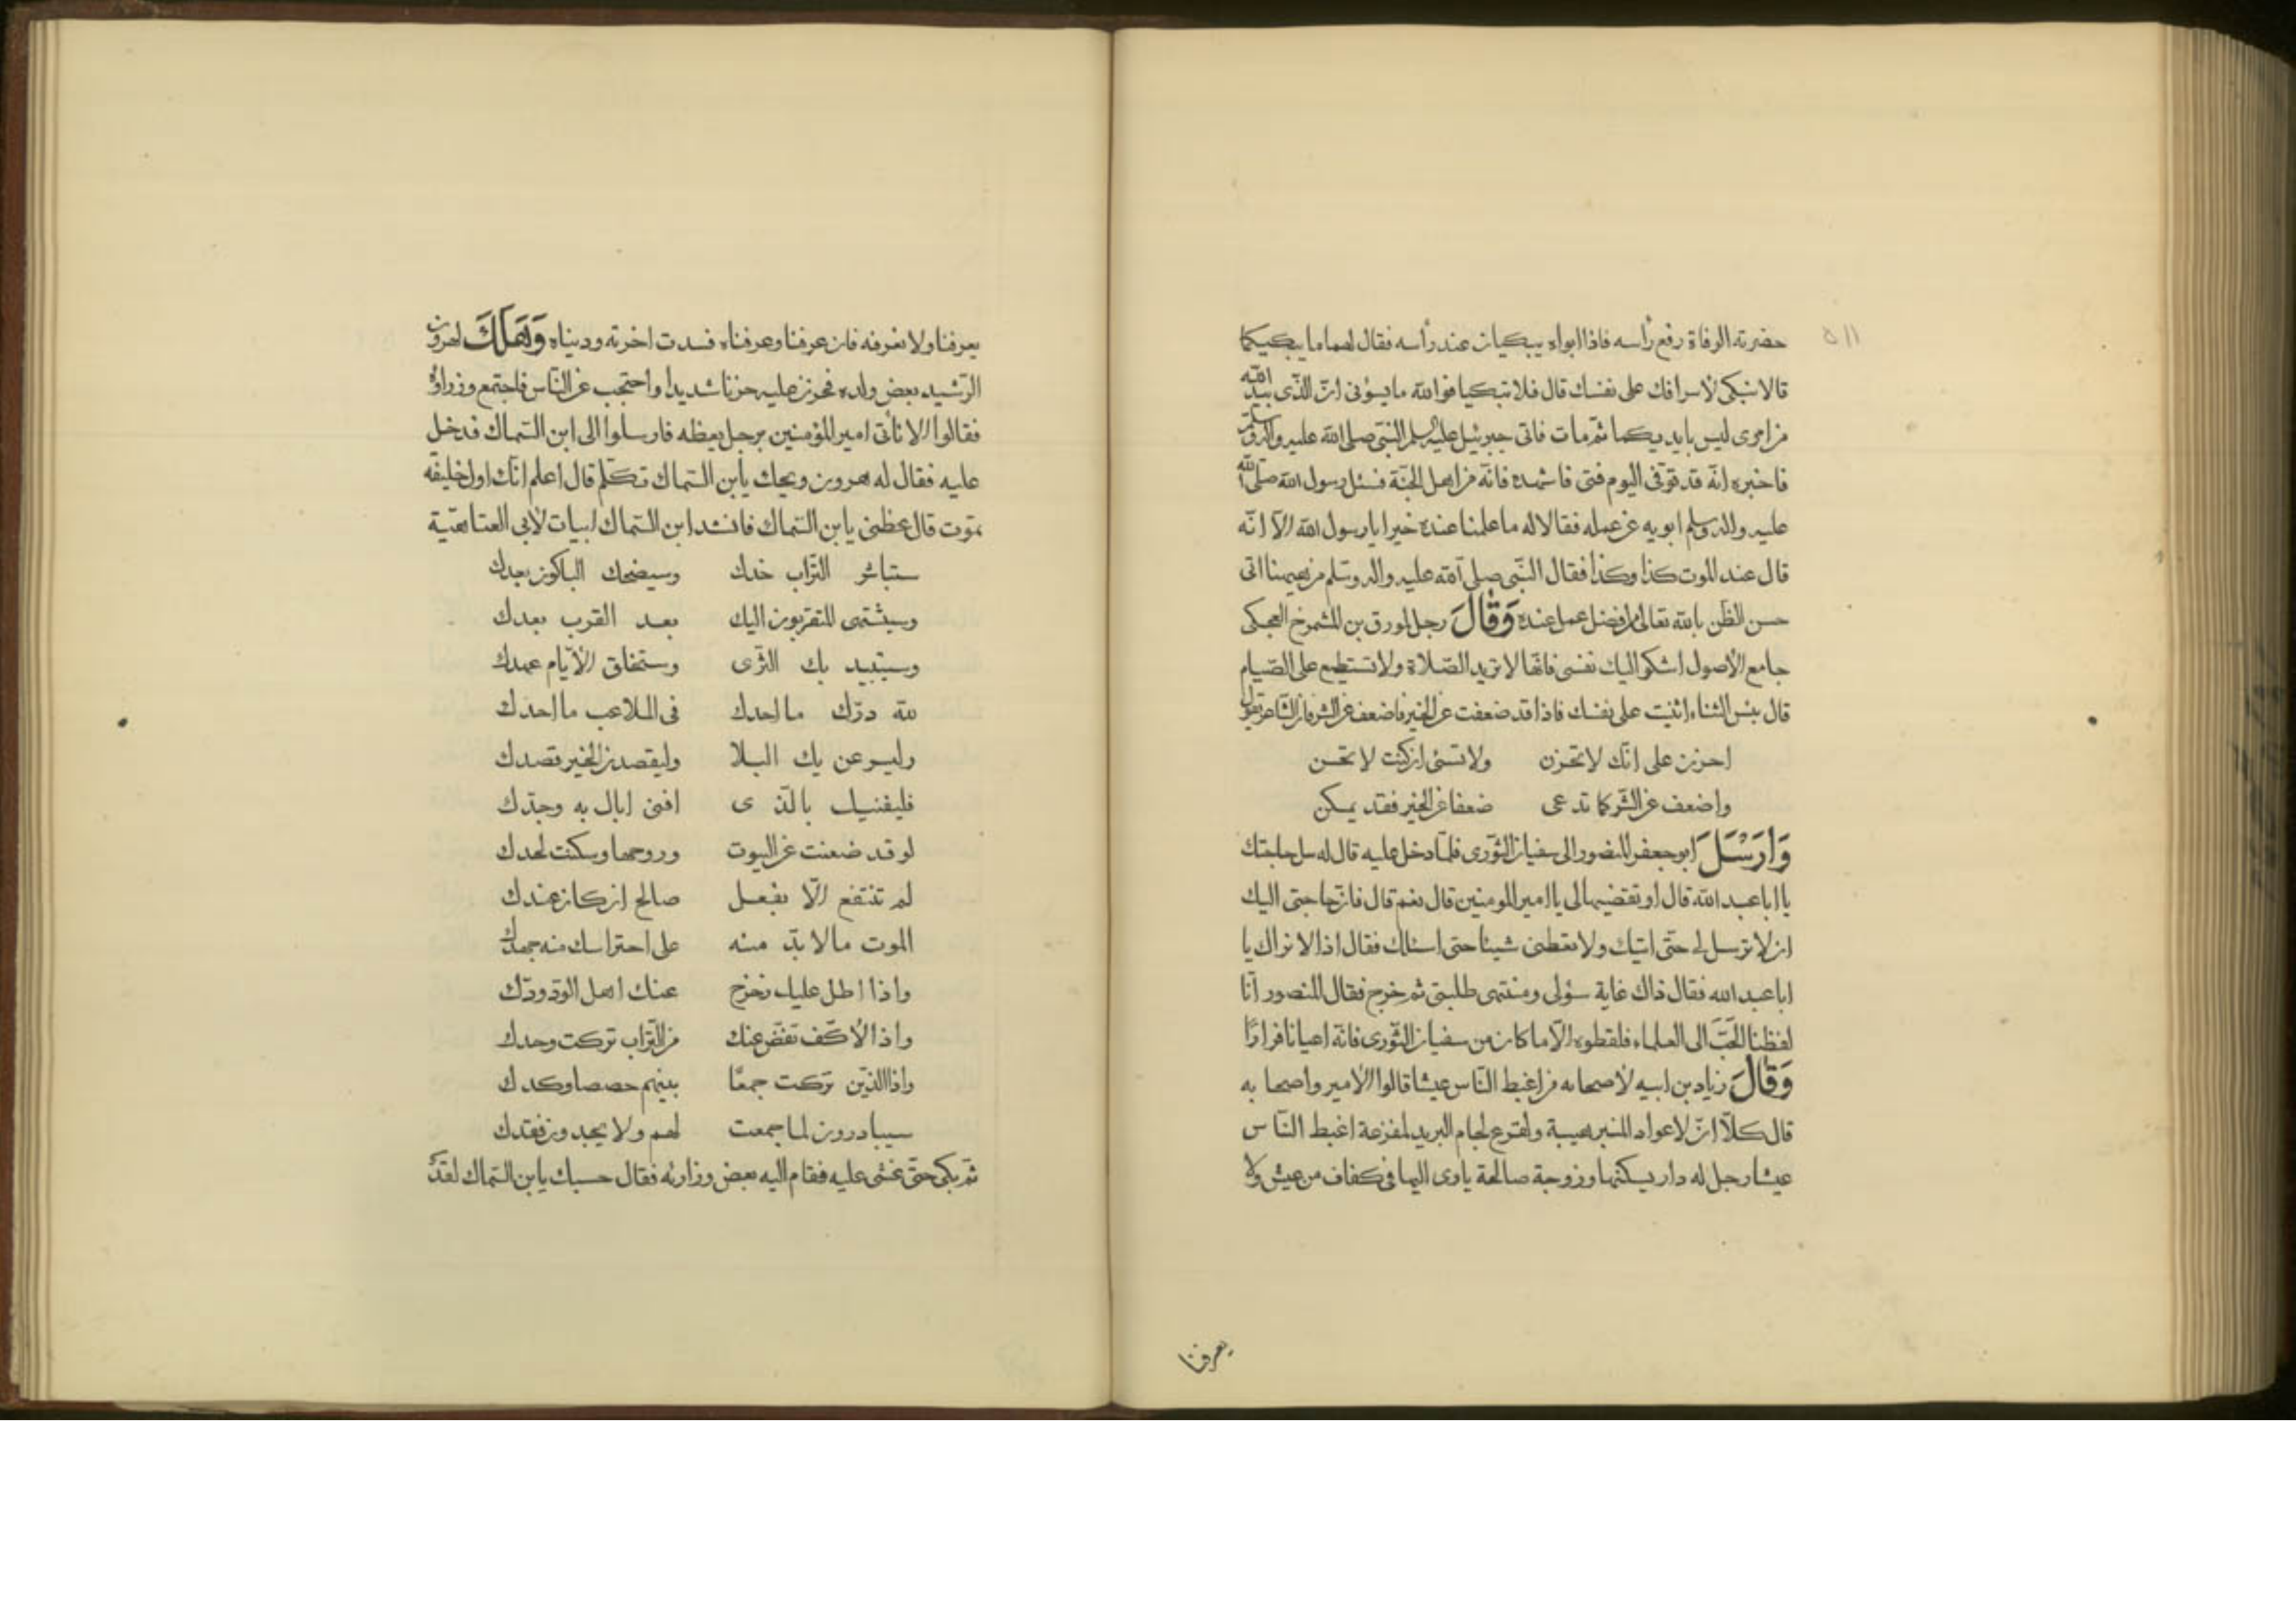 ٥١١
حضرته الوفاة رفع رأسه فاذا ابواه يبكيان عند رأسه فقال لهما ما يبكيكما
قالا نبكى لأسرافك على نفسك قال فلا تبكيا فوالله ما يسؤنى ان الذى بيد الله
من امرى ليس بايديكما ثم مات فاتى جبرئيل عليه السلم النبى صلى الله عليه واله وسلم
فاخبره انه قد توفى اليوم فتى فاشهده فانه من اهل الجنة فسئل رسول الله صلى الله
عليه واله وسلم ابويه عن عمله فقالا له ما علمنا عنده خيرا يا رسول الله الا انه
قال عند الموت كذا وكذا فقال النبى صلى الله عليه واله وسلم من هيهنا اتى
حسن الظن بالله تعالى من افضل عمل عنده وَقَالَ رجل لمورق بن المشمرخ العجكى
جامع الأصول اشكو اليك نفسى فانها لا تريد الصلاة ولا تستطيع على الصيام
قال بئس الثناء اثنيت على نفسك فاذا قد ضعفت عن الخير فاضعف عن الشر فان الشاعر يقول
احزن على انك لا تحزن ولا تسئ ان كنت لا تحسن
واضعف عن الشر كما تدعى ضعفا عن الخير فقد يمكن
وَارَسَلَ ابو جعفر المنصور الى سفيان الثورى فلما دخل عليه قال له سل حاجتك
يا ابا عبد الله قال او تقضيها لى يا امير المومنين قال نعم قال فان حاجتى اليك
ان لا ترسل لى حتى اتيك ولا تعطنى شيئا حتى اسئلك فقال اذا لا نراك يا
ابا عبد الله فقال ذاك غاية سؤلى ومنتهى طلبتى ثم خرج فقال المنصور انا
لفظنا الحَبَّ الى العلماء فلقطوه الا ما كان من سفيان الثورى فانه اعيانا فرارًا
وَقَالَ زياد بن ابيه لأصحابه من اغبط الناس عيشا قالوا الأمير واصحابه
قال كلا ان لاعواد المنبر هيبة ولقرع لجام البريد لفزعة اغبط الناس
عيشا رجل له دار يسكنها وزوجة صالحة ياوى اليها فى كفاف من عيش ولا
يعرفنا
يعرفنا ولا نعرفه فان عرفنا وعرفناه فسدت اخرته ودنياه وَهَلَكَ لهرون
الرشيد بعض ولده فحزن عليه حزنا شديدا واحتجب عن الناس فاجتمع وزراؤه
فقالوا الا نأتى امير المؤمنين برجل يعظه فارسلوا الى ابن السماك فدخل
عليه فقال له هرون ويحك يأبن السماك تكلم قال اعلم انك اول خليفه
تموت قال عظنى يا بن السماك فانشد ابن السماك ابيات لأبى العتاهية
ستباشر التراب خدك وسيضحك الباكون بعدك
وسيشتهى المتقربون اليك بعد القرب بعدك
وسيتبيد بك الثرى وستخلق الأيام عهدك
لله درك ما اجدك فى الملاعب ما اجدك
وليسرعن بك البلا وليقصدن الخير قصدك
فليفنيك بالذى افنى اباك به وجدك
لو قد ضعنت عن البيوت وروحها وسكنت لحدك
لم تنتفع الا بفعل صالح ان كان عندك
الموت ما لا بد منه على احتراسك منه جهدك
واذا الأكف تفض عنك من التراب تركت وحدك
واذا الذين تركت جمعا بينهم حصصا وكدك
سيبادرون لما جمعت لهم ولا يجدون فقدك
ثم بكى حتى غشى عليه فقام اليه بعض وزارئه فقال حسبك يا بن السماك لقد